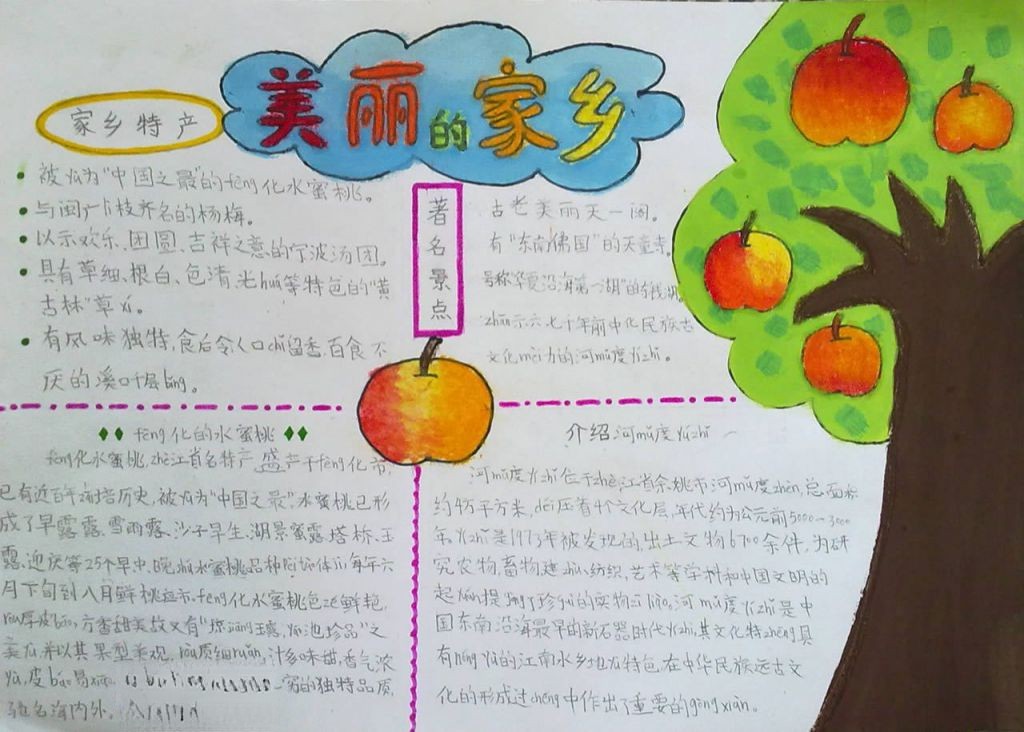 美丽的家乡
家乡特产
被yù为"中国之最"的fèng化水蜜桃。
与闽广荔枝齐名的杨梅。
以示欢乐、团圆、吉祥之意的宁波汤团。
具有草细、根白、色清、光huá等特色的"黄
古林"草xí。
有风味独特,食后令人口chǐ留香,百食不
厌的溪口千层bǐng。
著名景点
古老美丽天一阁。
有"东南佛国"的天童寺。
号称华夏沿海第一湖"的东钱湖。
zhǎn示六七千年前中华民族古
文化mèi力的河mǔ度yízhǐ。
fèng化的水蜜桃
fèng化水蜜桃,zhè江省名特产,盛产于fèng化市,
已有近百年
历史,被yù为"中国之最",水蜜桃已形
成了早露露、雪雨露、沙子早生、湖景蜜露、塔桥、玉
露、迎庆等25个早中、晚
水蜜桃品种
每年六
月下旬到八月鲜桃
fèng化水蜜桃
方香甜美故又有"琼jiāng玉露,yáo池珍品"之
美
并以其果型美观、ròu质细ruǎn,汁多味甜,香气浓
yù,皮báo易
的独特品质,
驰名海内外。
介绍河mǔ度yízhǐ
河mǔ度yízhǐ位于zhè江省余姚市河mǔ度zhèn,总面积
约4万平方米,dié压着4个文化层,年代约为公元前5000-3000
年。yízhǐ是1973年被发现的,出土文物6700余件,为研
究农物,畜物建zhù、纺织、艺术等学科和中国文明的
起yuán提
了珍guì的实物
河mǔ度yízhǐ是中
国东南沿海最早的新石器时代yízhǐ,其文化特zhēng具
有nóng yù的江南水乡地方特色,在中华民族远古文
化的形成过chéng中作出了重要的gòng xiàn。